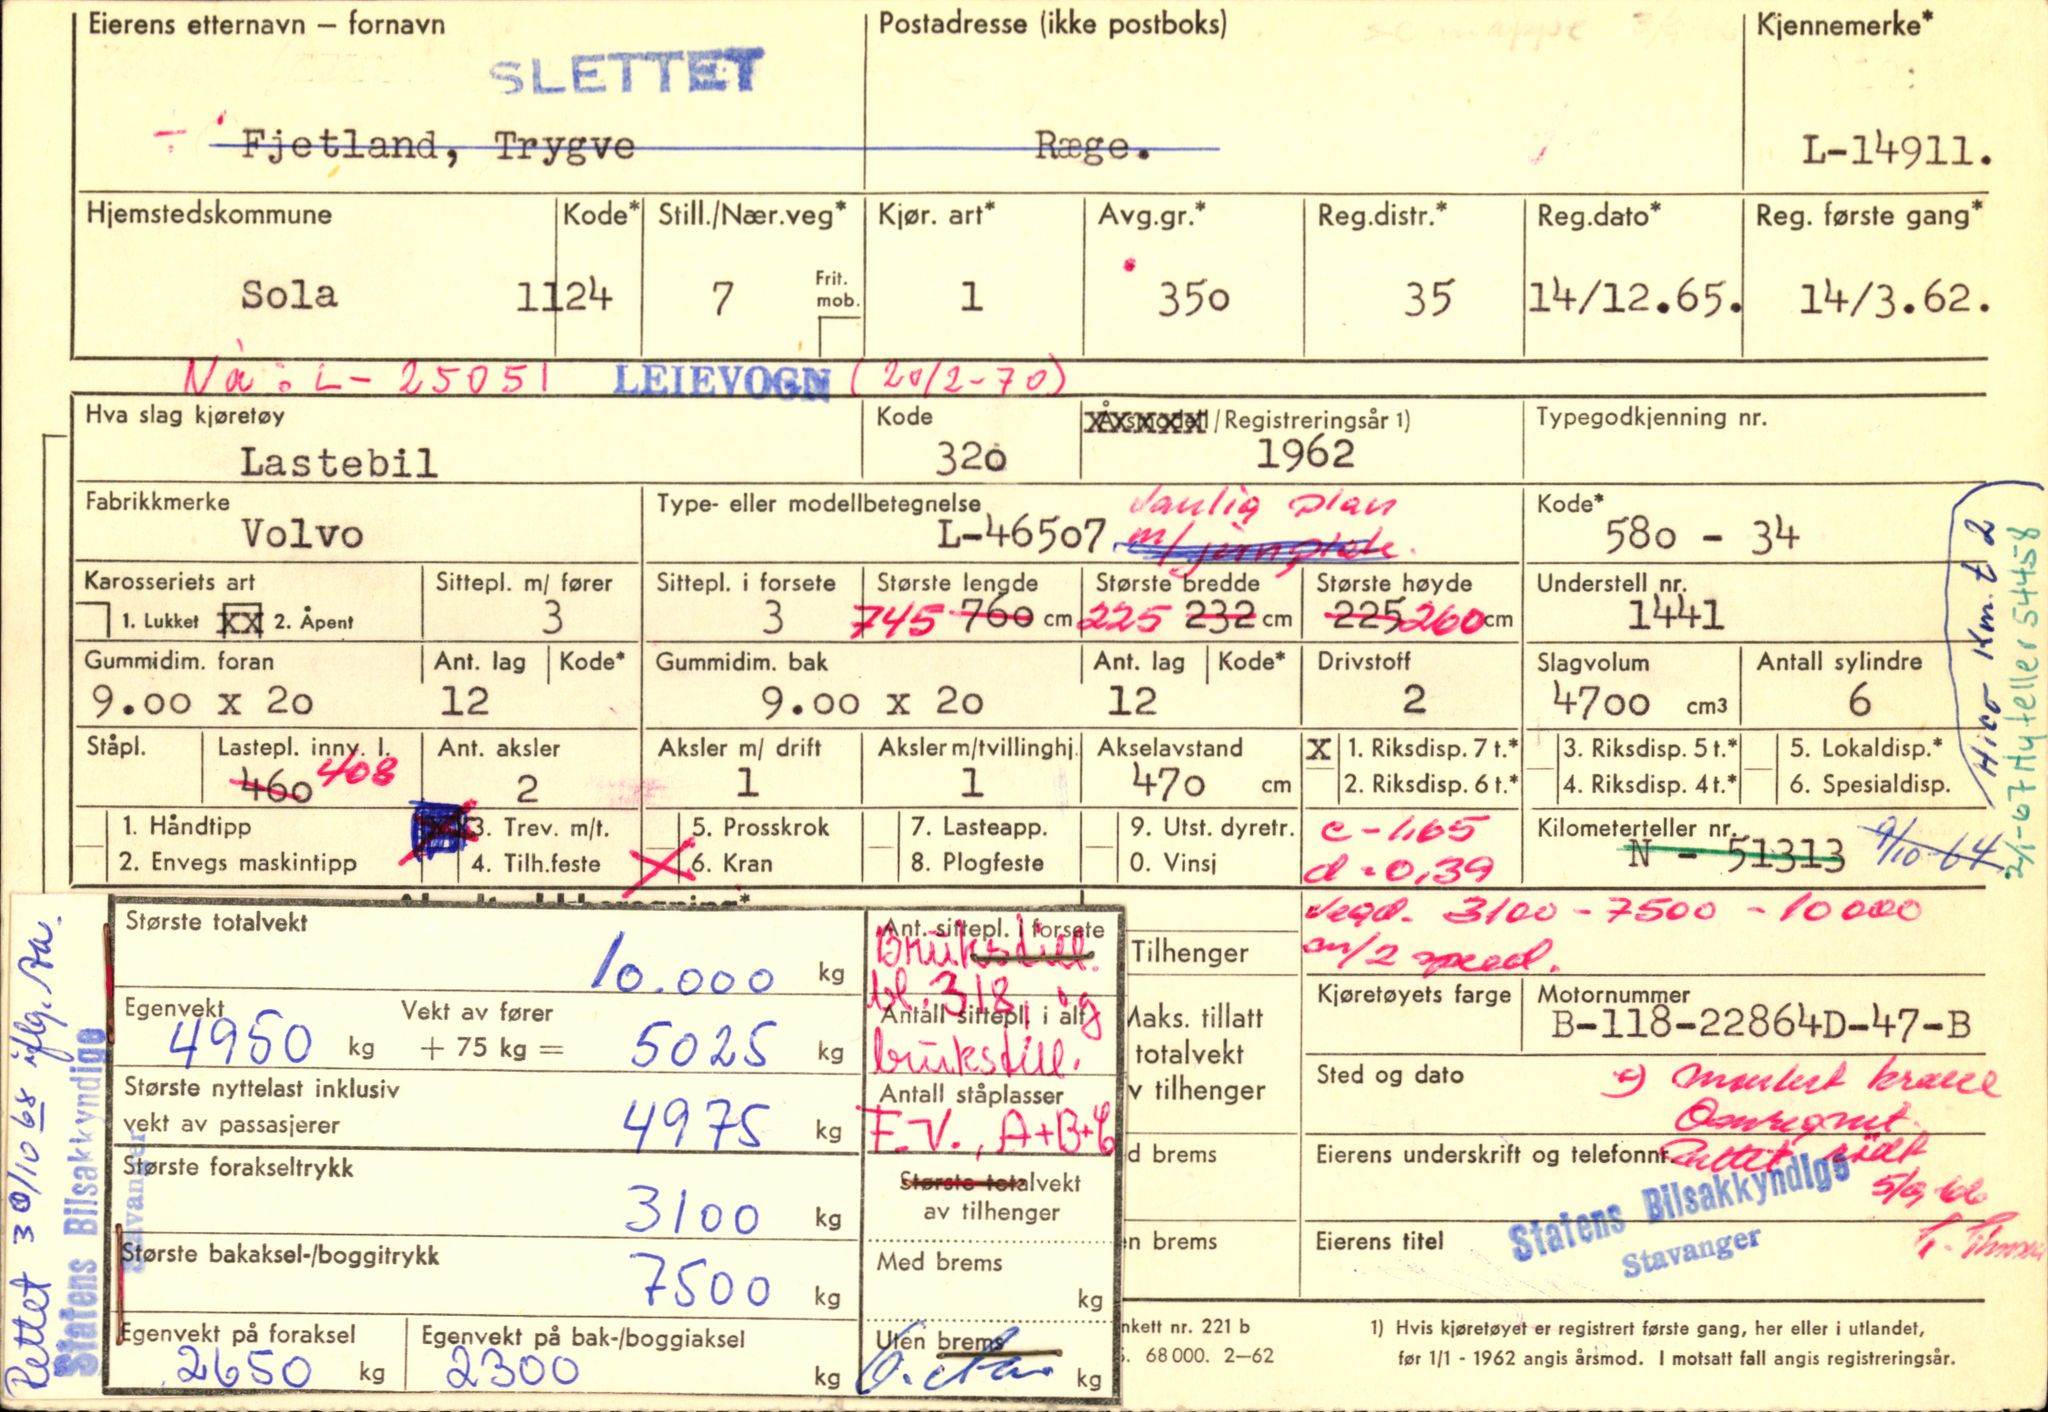 Eierens etternavn – fornavn
Postadresse (ikke postboks)
Kjennemerke*
SLETTET
Fjetland, Trygve
Ræge.
L-14911.
Hjemstedskommune
Kode*
Still./Nær.veg*
Kjør. art*
Avg.gr.*
Reg.distr.*
Reg.dato*
Reg. første gang*
Sola
1124
7
Frit. mob.
1
350
35
14/12.65.
14/3.62.
Nå: L- 25051 LEIEVOGN (20/2-70)
Hva slag kjøretøy
Kode
Årsmodell/Registreringsår 1)
Typegodkjenning nr.
Lastebil
320
1962
Fabrikkmerke
Type- eller modellbetegnelse
Kode*
Volvo
L-46507
Vanlig plan
m/
580 - 34
Karosseriets art
Sittepl. m/ fører
Sittepl. i forsete
Største lengde
Største bredde
Største høyde
Understell nr.
1. Lukket XX 2. Åpent
3
3
745 760 cm
225 232 cm
225 260 cm
1441
Gummidim. foran
Ant. lag
Kode*
Gummidim. bak
Ant. lag
Kode*
Drivstoff
Slagvolum
Antall sylindre
9.00 x 20
12
9.00 x 20
12
2
4700 cm3
6
Ståpl.
Lastepl. innv. l.
Ant. aksler
Aksler m/ drift
Aksler m/tvillinghj.
Akselavstand
X 1. Riksdisp. 7 t.*
3. Riksdisp. 5 t.*
5. Lokaldisp.*
460 408
2
1
1
470 cm
2. Riksdisp. 6 t.*
4. Riksdisp. 4 t.*
6. Spesialdisp.
1. Håndtipp
3. Trev. m/t.
5. Prosskrok
7. Lasteapp.
9. Utst. dyretr.
c - 1,65
Kilometerteller nr.
2. Envegs maskintipp
4. Tilh.feste
6. Kran
8. Plogfeste
0. Vinsj
d = 0,39
N - 51313
9/10-64
Hico Km.t 2
2/1-67 Ny teller 54458
Største totalvekt
10.000 kg
Ant. sittepl. i forsete
Bruкstill.
Tilhenger
Vegd. 3100 - 7500 - 10000
m/2 speed.
bl. 318, ig
Egenvekt
4950 kg
Vekt av fører
+ 75 kg =
5025 kg
Antall sittepl. i alt
brukstill.
Maks. tillatt
totalvekt
v tilhenger
Kjøretøyets farge
Motornummer
B-118-22864D-47-B
Største nyttelast inklusiv
vekt av passasjerer
4975 kg
Antall ståplasser
F.V., A+B+C
Sted og dato
montert krane
Omregnet.
Rettet rødt
5/9-66
Største forakseltrykk
3100 kg
Største totalvekt
av tilhenger
d brems
Eierens underskrift og telefonnr.
Statens Bilsakkyndige
Stavanger
Største bakaksel-/boggitrykk
7500 kg
Med brems
kg
n brems
Eierens titel
Egenvekt på foraksel
2650 kg
Egenvekt på bak-/boggiaksel
2300 kg
Uten brems
kg
nkett nr. 221 b
S. 68 000. 2–62
1) Hvis kjøretøyet er registrert første gang, her eller i utlandet,
før 1/1 - 1962 angis årsmod. I motsatt fall angis registreringsår.
Rettet 30/10 68 iflg.
Statens Bilsakkyndige
Stavanger